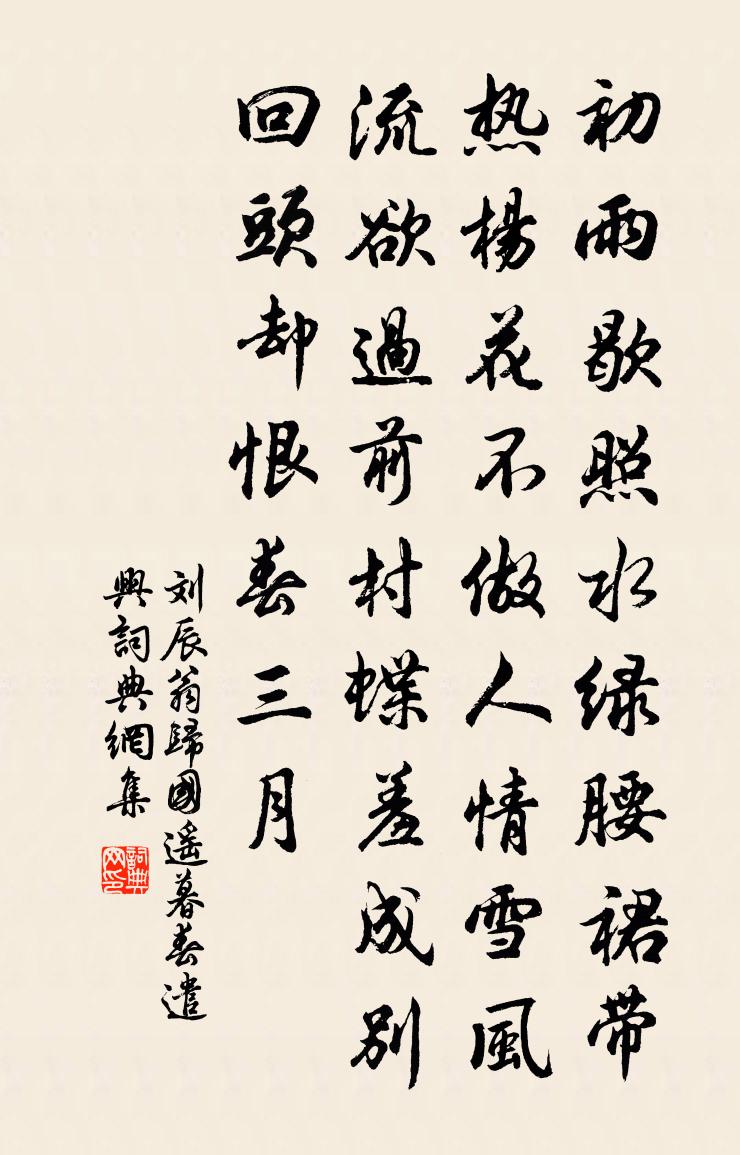 初雨歇照水绿腰裙带
热楊花不做人情雪風
流欲過前村蝶羞成别
回頭却恨春三月
刘辰翁歸國遥暮春遣
興詞典網集
詞典網印